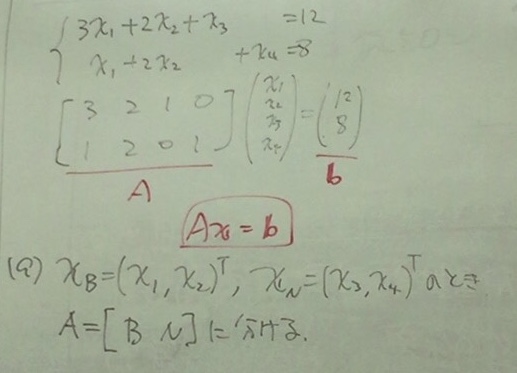 3x₁+2x₂+x₃ =12
x₁+2x₂ +x₄=8
[3 2 1 0
1 2 0 1] (x₁ x₂ x₃ x₄) = (12 8)
A b
Ax=b
(a) x_B=(x₁, x₂)ᵀ, x_N=(x₃, x₄)ᵀのとき
A=[B N]に分ける.